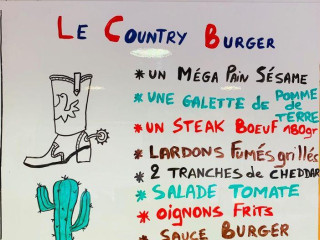 Le Country Burger
* un Méga Pain Sésame
* une galette de pomme de terre
* un steak boeuf 180gr
* Lardons fumés grillés
* 2 tranches de cheddar
* Salade tomate
* oignons frits
* Sauce Burger